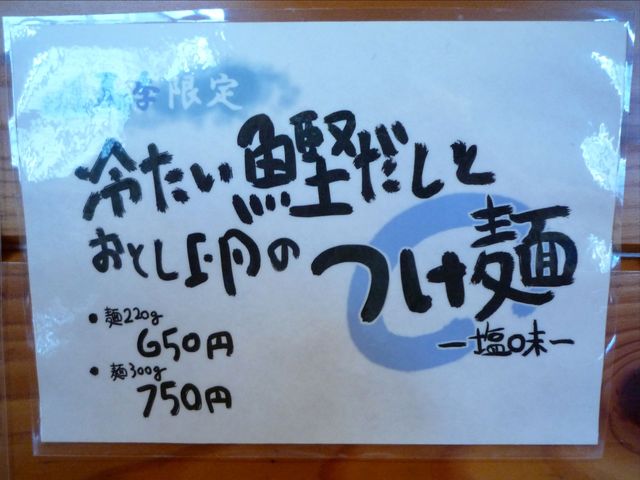 限定
冷たい鰹だしと
おとし卵の
つけ麺
ー塩味ー
• 麺220g
650円
• 麺300g
750円